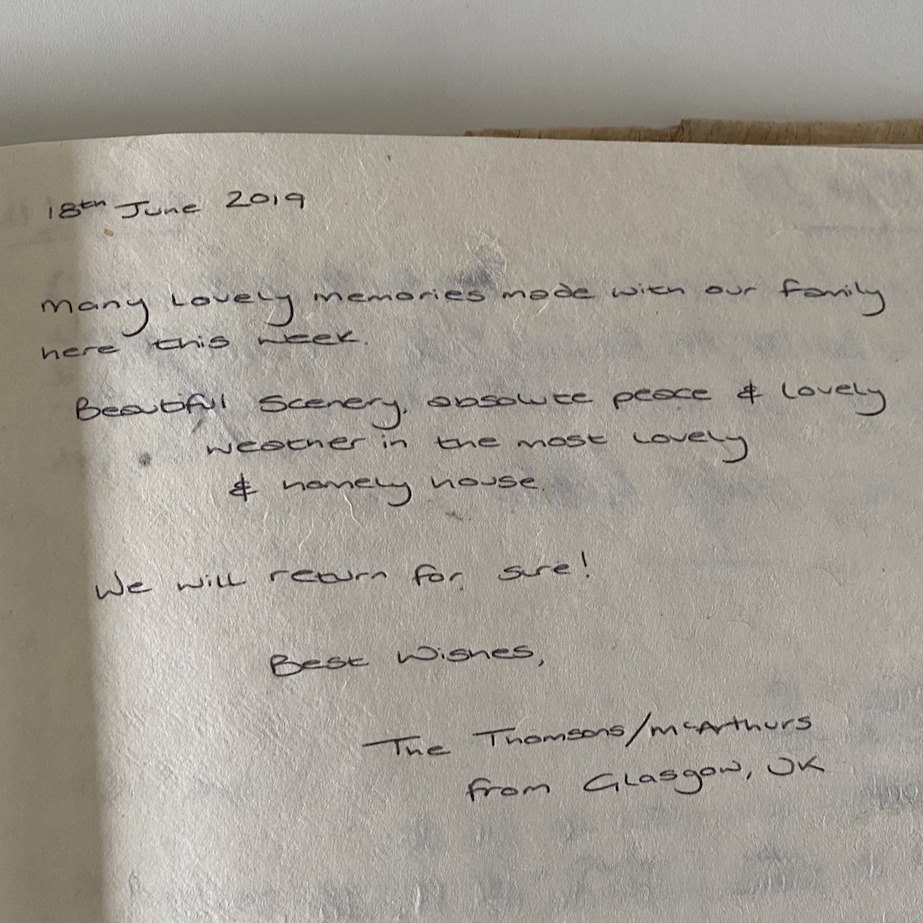 18th June 2019
Many Lovely memories made with our family
here this week.
Beautiful Scenery, absolute peace & Lovely
weather in the most Lovely
& homely house.
We will return for sure!
Best Wishes,
The Thomsons/McArthurs
from Glasgow, UK